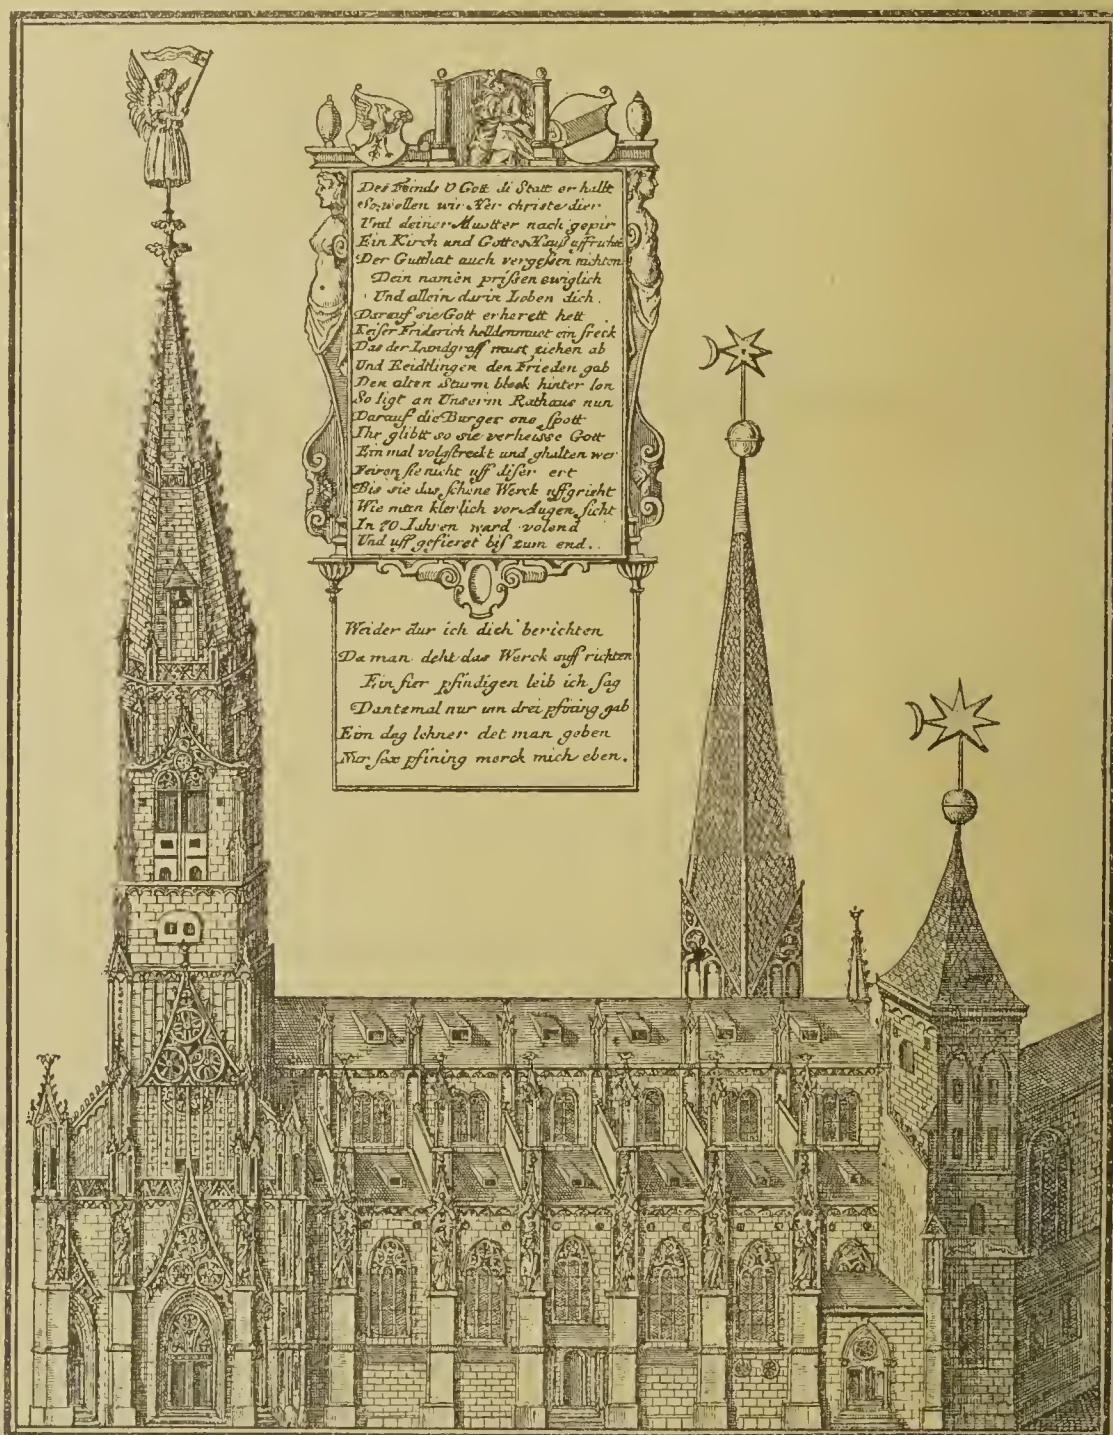 Des Feinds O Gott di Statt er hallt
So wellen wir Her christe dier
Und deiner Muotter nach gepir
Ein Kirch und Gottes Hauß uffrichte
Der Gutthat auch vergeßen nichten
Dein namen prißen ewiglich
Und allein darin Loben dich.
Darauf sie Gott erherett hett
Keiser Friderich helldenmuet ein freck
Das der Landgraff must ziehen ab
Und Reidtlingen den Frieden gab
Den alten Sturm block hinter lon
So ligt an Unserm Rathaus nun
Darauf die Burger one spott
Ihr glibtt so sie verheisse Gott
Ein mal volgstreckt und ghalten wer
Feiren sie nicht uff diser ert
Bis sie das schene Werck uffgricht
Wie man klerlich vor Augen sicht
In 70 Jahren ward volend
Und uff gefieret biß zum end.
Weider dur ich dich berichten
Da man deht das Werck auff richten
Ein fier pfindigen leib ich sag
Dantzmal nur um drei pfining gab
Eim dag lehner det man geben
Nur sex pfining merck mich eben.